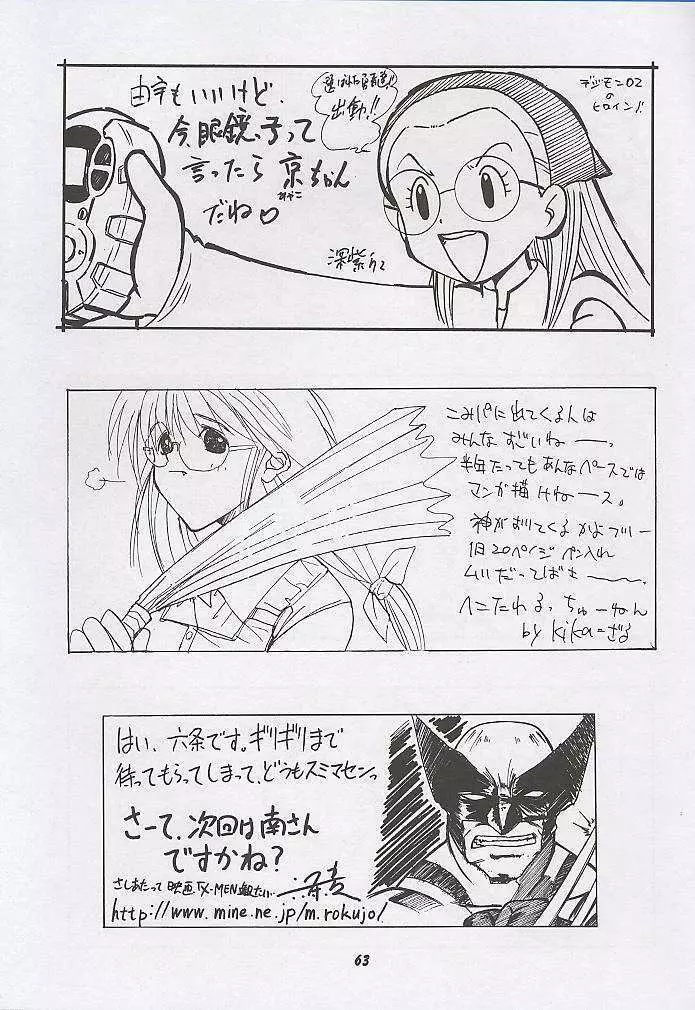 由宇もいいけど、
今眼鏡っ子って
言ったら京ちゃん
みやこ
だね♡
出動!!
デジモン02
の
ヒロイン!!
深紫
こみパに出てくる人は
みんなすごいねー。
半年たってもあんなペースでは
マンガ描けねース。
神がおりてくるかよブリー
1日20ページペン入れ
ムリだってばもー。
へこたれるっちゅーねん
by kikaーざる
はい、六条です。ギリギリまで
待ってもらってしまって、どうもスミマセンっ
さーて、次回は南さん
ですかね?
さしあたって映画「X-MEN」観たい…
http://www.mine.ne.jp/m.rokujo/
63